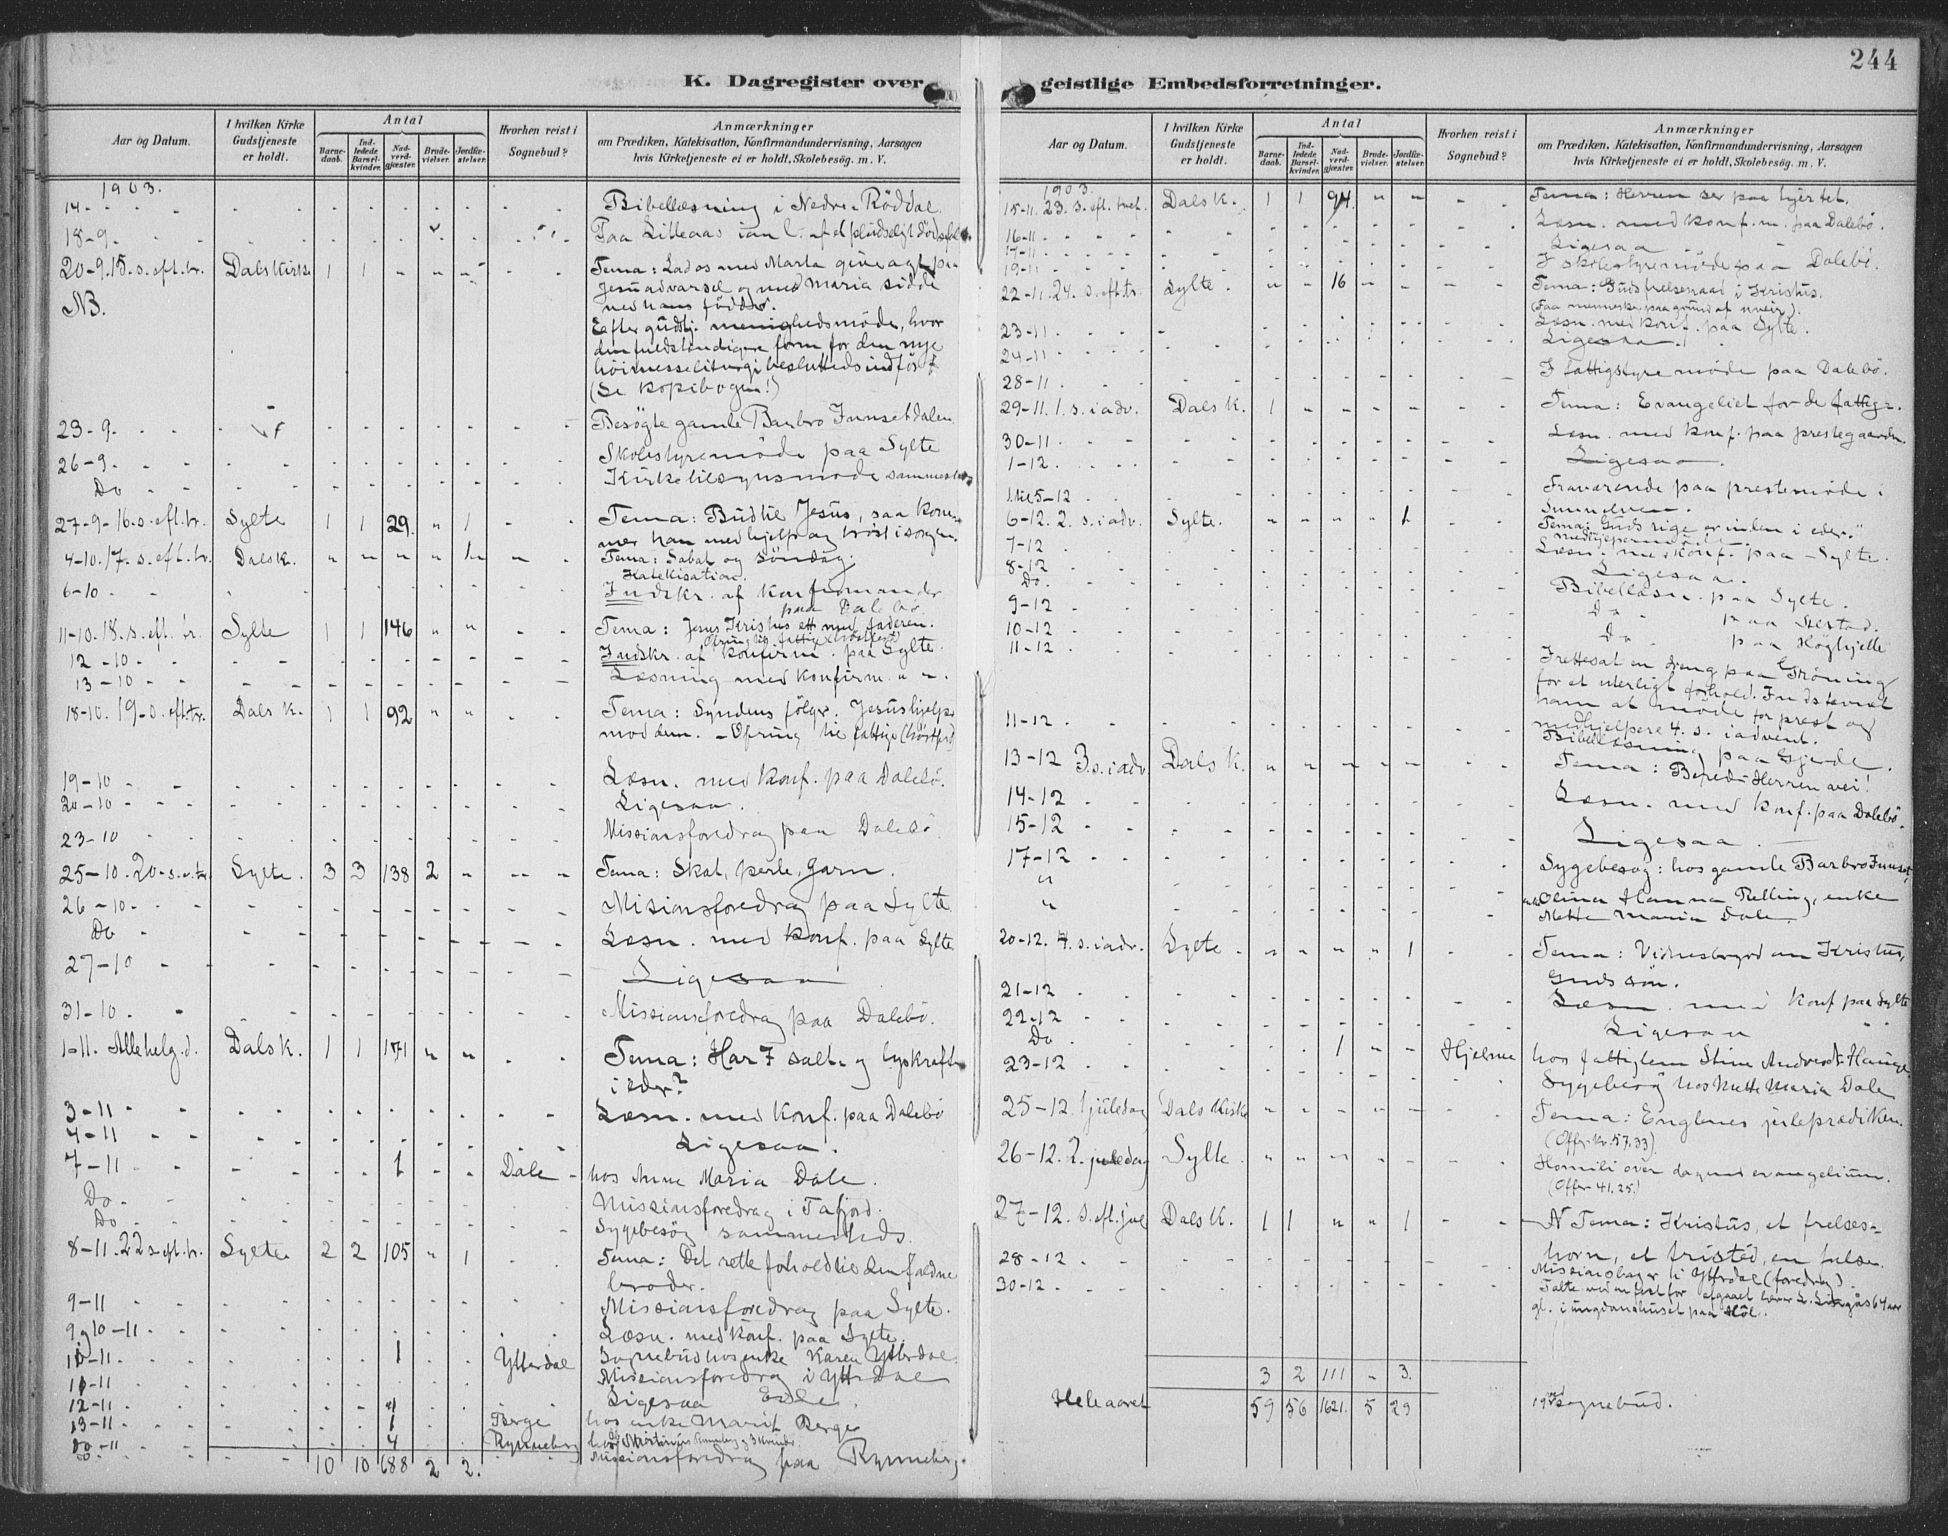 244
K. Dagregister over
Aar og Datum.
I hvilken Kirke Gudstjeneste er holdt.
Antal
Barnedaab.
Indledede Barselkvinder.
Nadverdgjæster.
Brudevielser.
Jordfæstelser.
Hvorhen reist i Sognebud?
Anmærkninger
om Prædiken, Katekisation, Konfirmandundervisning, Aarsagen
hvis Kirketjeneste ei er holdt, Skolebesøg. m. V.
1903.
14- Bibellæsning i Nedre Röddal.
18-9
20-9. 15. s. eft. tr. Dals Kirke 1 1 " " " Tema: Lad os med Marta give agt paa
Jesu advarsel og med Maria sidde
ved hans födder.
NB.
Efter gudstj. menighedsmöde, hvor
den fuldstændigere form for den nye
höimesseliturgi besluttedes indfört
(Se kopibogen!)
23-9. Besögte gamle Barbro Furusetdalen
26-9. Skolestyremöde paa Sylte
Do Kirketilsynsmöde sammesteds
27-9-16. s. eft. tr. Sylte 1 1 29. " 1 Tema: Bud til Jesus, saa kommer
han med hjelp og tröst i sorgen.
4-10. 17. s. eft. tr. Dals k. " " " " 1 Tema: Sabat og söndag.
Katekisation.
6-10 Indskr. af Konfirmander
paa Dalebö.
11-10. 18. s. eft. tr. Sylte 1 1 146 " " Tema: Jesus Kristus ett med faderen.
12-10 Indskr. af konfirm. paa Sylte.
13-10 Læsning med konfirm. " "
18-10. 19-s. eft. tr. Dals k. 1 1 92 " " Tema: Syndens fölger. Jesus hjelper
mod dem. - Ofring til fattige (höstofred)
19-10 Læsn. med konf. paa Dalebö.
20-10 Ligesaa.
23-10 Missionsforedrag paa Dalebö.
25-10. 20-s. e. tr. Sylte. 3 3 138 2 " Tema: Skat, perle, Garn.
26-10 Misionsforedrag paa Sylte
Do Læsn. med konf. paa Sylte
27-10 Ligesaa
31-10. Missionsforedrag paa Dalebö.
1-11. Allehelg. d. Dals k. 1 1 171 " " Tema: Har I salt- og lyskraften
i eder?
3-11 Læsn. med konf. paa Dalebö
4-11 Ligesaa.
7-11 1 Dale - hos Anne Maria Dale.
Do Missionsforedrag i Tafjord.
Do Sygebesög sammesteds.
8-11. 22 s. eft. tr. Sylte 2 2 105 " 1 Tema: Det rette forhold til den faldne
broder.
9-11 Missionsforedrag paa Sylte.
9 og 10-11 Læsn. med konf. paa Sylte.
10-11 1 Ytterdal Sognebud hos enke Karen Ytterdal.
11-11 Missionsforedrag i Ytterdal
12-11 Ligesaa
13-11 1 Berge hos enke Marit Berge
Do-11 4 Rynneberg
Missionsforedrag paa Rynneberg.
10 10 688 2 2.
geistlige Embedsforretninger.
Aar og Datum.
I hvilken Kirke Gudstjeneste er holdt.
Antal
Barnedaab.
Indledede Barselkvinder.
Nadverdgjæster.
Brudevielser.
Jordfæstelser.
Hvorhen reist i Sognebud?
Anmærkninger
om Prædiken, Katekisation, Konfirmandundervisning, Aarsagen
hvis Kirketjeneste ei er holdt, Skolebesøg. m. V.
1903.
15-11. 23. s. eft. tref. Dals k. 1 1 94. " " Tema: Herren ser paa hjertet.
16-11 Læsn. med konf. m. paa Dalebö.
17-11 Ligesaa
19-11 I skolestyremöde paa Dalebö.
22-11. 24. s. eft. tr. Sylte. " " 16 " " Tema: Guds frelsesraad i Kristus.
(Faa mennesker paa grund af uveir).
23-11 Læsn. med konf. paa Sylte.
24-11 Ligesaa.
28-11 I fattigstyremöde paa Dalebö.
29-11. 1. s. i adv. Dals k. 1 " " " " Tema: Evangeliet for de fattige.
30-11 Læsn. med konf. paa prestegaarden
1-12. Ligesaa.
1 til 5-12 Fraværende paa prestemöde i
6-12. 2. s. i adv. Sylte. " " " " 1 Tema: "Guds rige er inden i eder."
7-12 Læsn. med konf. paa Sylte.
8-12 Ligesaa.
Do Bibellæsn. paa Sylte.
9-12 Do paa
10-12 Do paa Höghjelle
11-12 Irettesat en dreng paa Gröning
for et uterligt forhold. Indstevnt
ham at möde for prest og
medhjelpere 4. s. i advent.
11-12 Bibellæsning paa Gjerde.
13-12 3. s. i adv. Dals k. " " " " " Tema: Bered Herren vei!
14-12 Læsn. med konf. paa Dalebö.
15-12 Ligesaa
17-12 Sygebesög: hos gamle Barbro Furuset,
" Olina Hanna Relling, enke
" Mette Maria Dale.
20-12. 4. s. i adv. Sylte " " " " 1 Tema: Vidnesbyrd om Kristus,
Guds sön.
21-12 Læsn. med konf. paa Sylte
22-12 Ligesaa
Do 1 " " Hjelme hos fattiglem Stine
23-12 Sygebesög hos Mette Maria Dale
25-12. 1 juledag Dals Kirke " " " " " Tema: Englenes juleprædiken.
(Offer Kr. 57.33).
26-12. 2. juledag Sylte " " " " " Homili over dagens evangelium.
(Offer 41.25.)
27-12. S. eft. jul Dals k. 1 1 " " 1 Tema: Kristus, et frelseshorn,
et fristed, en
28-12 i Ytterdal (foredrag).
30-12
gl. i ungdomshuset paa
3 2 111 " 3.
Hele aaret 59 56 1621. 5 29 19 ved sognebud.